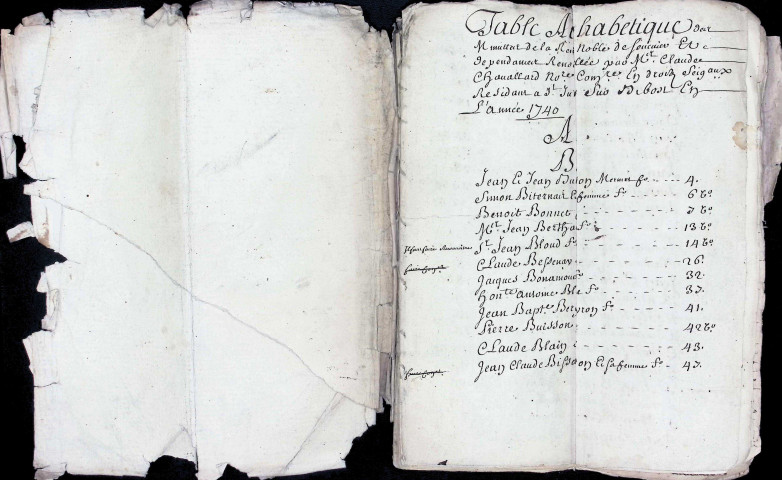 Table Alphabetique des
de la Rente Noble de Et
dependances Renovée par Mr. Claude
Chavallard Nore. Comre. En droits Seigaux
Residant a St. Just En
L'année 1740
A
B
Jean et Jean Buion fo — 4.
Simon Biternait et femme fo — 6 Vo
Benoit Bonnet — 7 Vo
Mr. Jean Bertha fo — 13 Vo
Sr. Jean Bloud fo — 14 Vo
Claude Bessenay — 26.
Jacques Bonamour — 32.
Honte. Antoine Ble fo — 37.
Jean Bapte. Beyron fo — 41.
Pierre Buisson — 42 Vo
Claude Blain — 43.
Jean Claude Bisson et sa femme fo — 47.